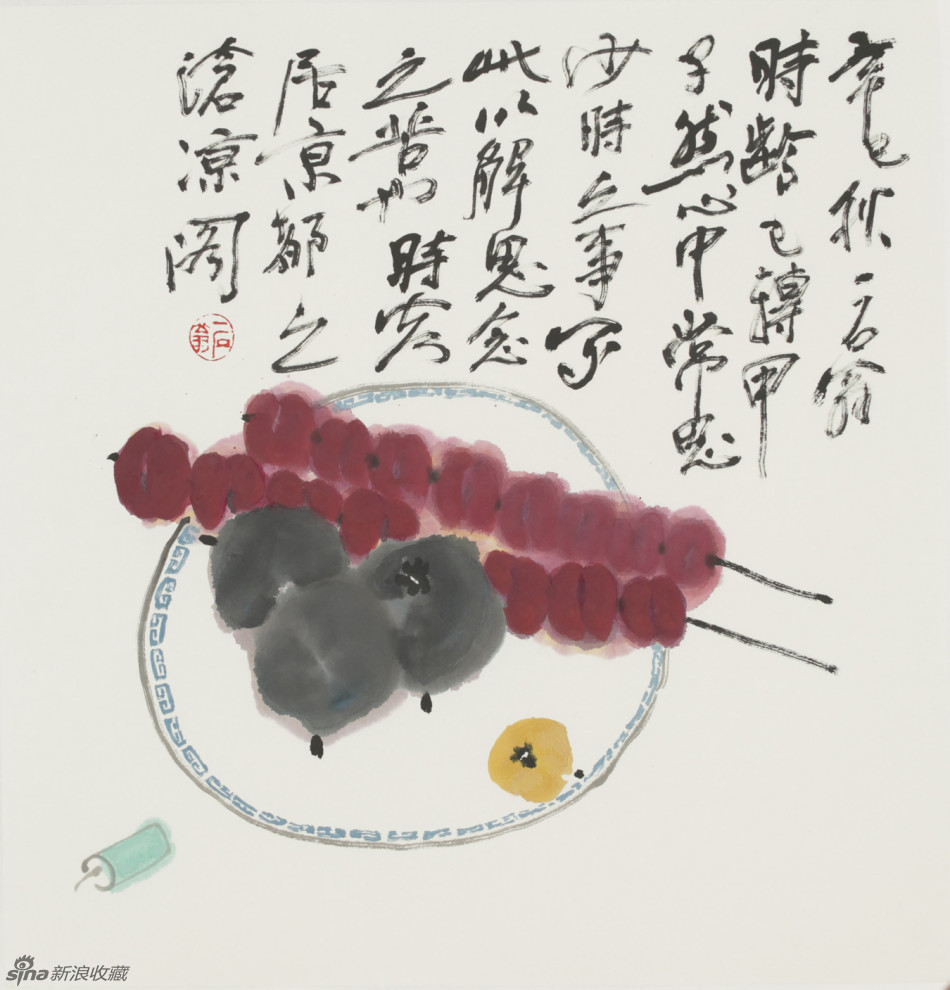 辛巳秋一石翁
時齡已轉甲
子然心中常思
時之事写
此以解思念
之苦也時客
居京都之
滄凉阁
一石翁
sina新浪收藏